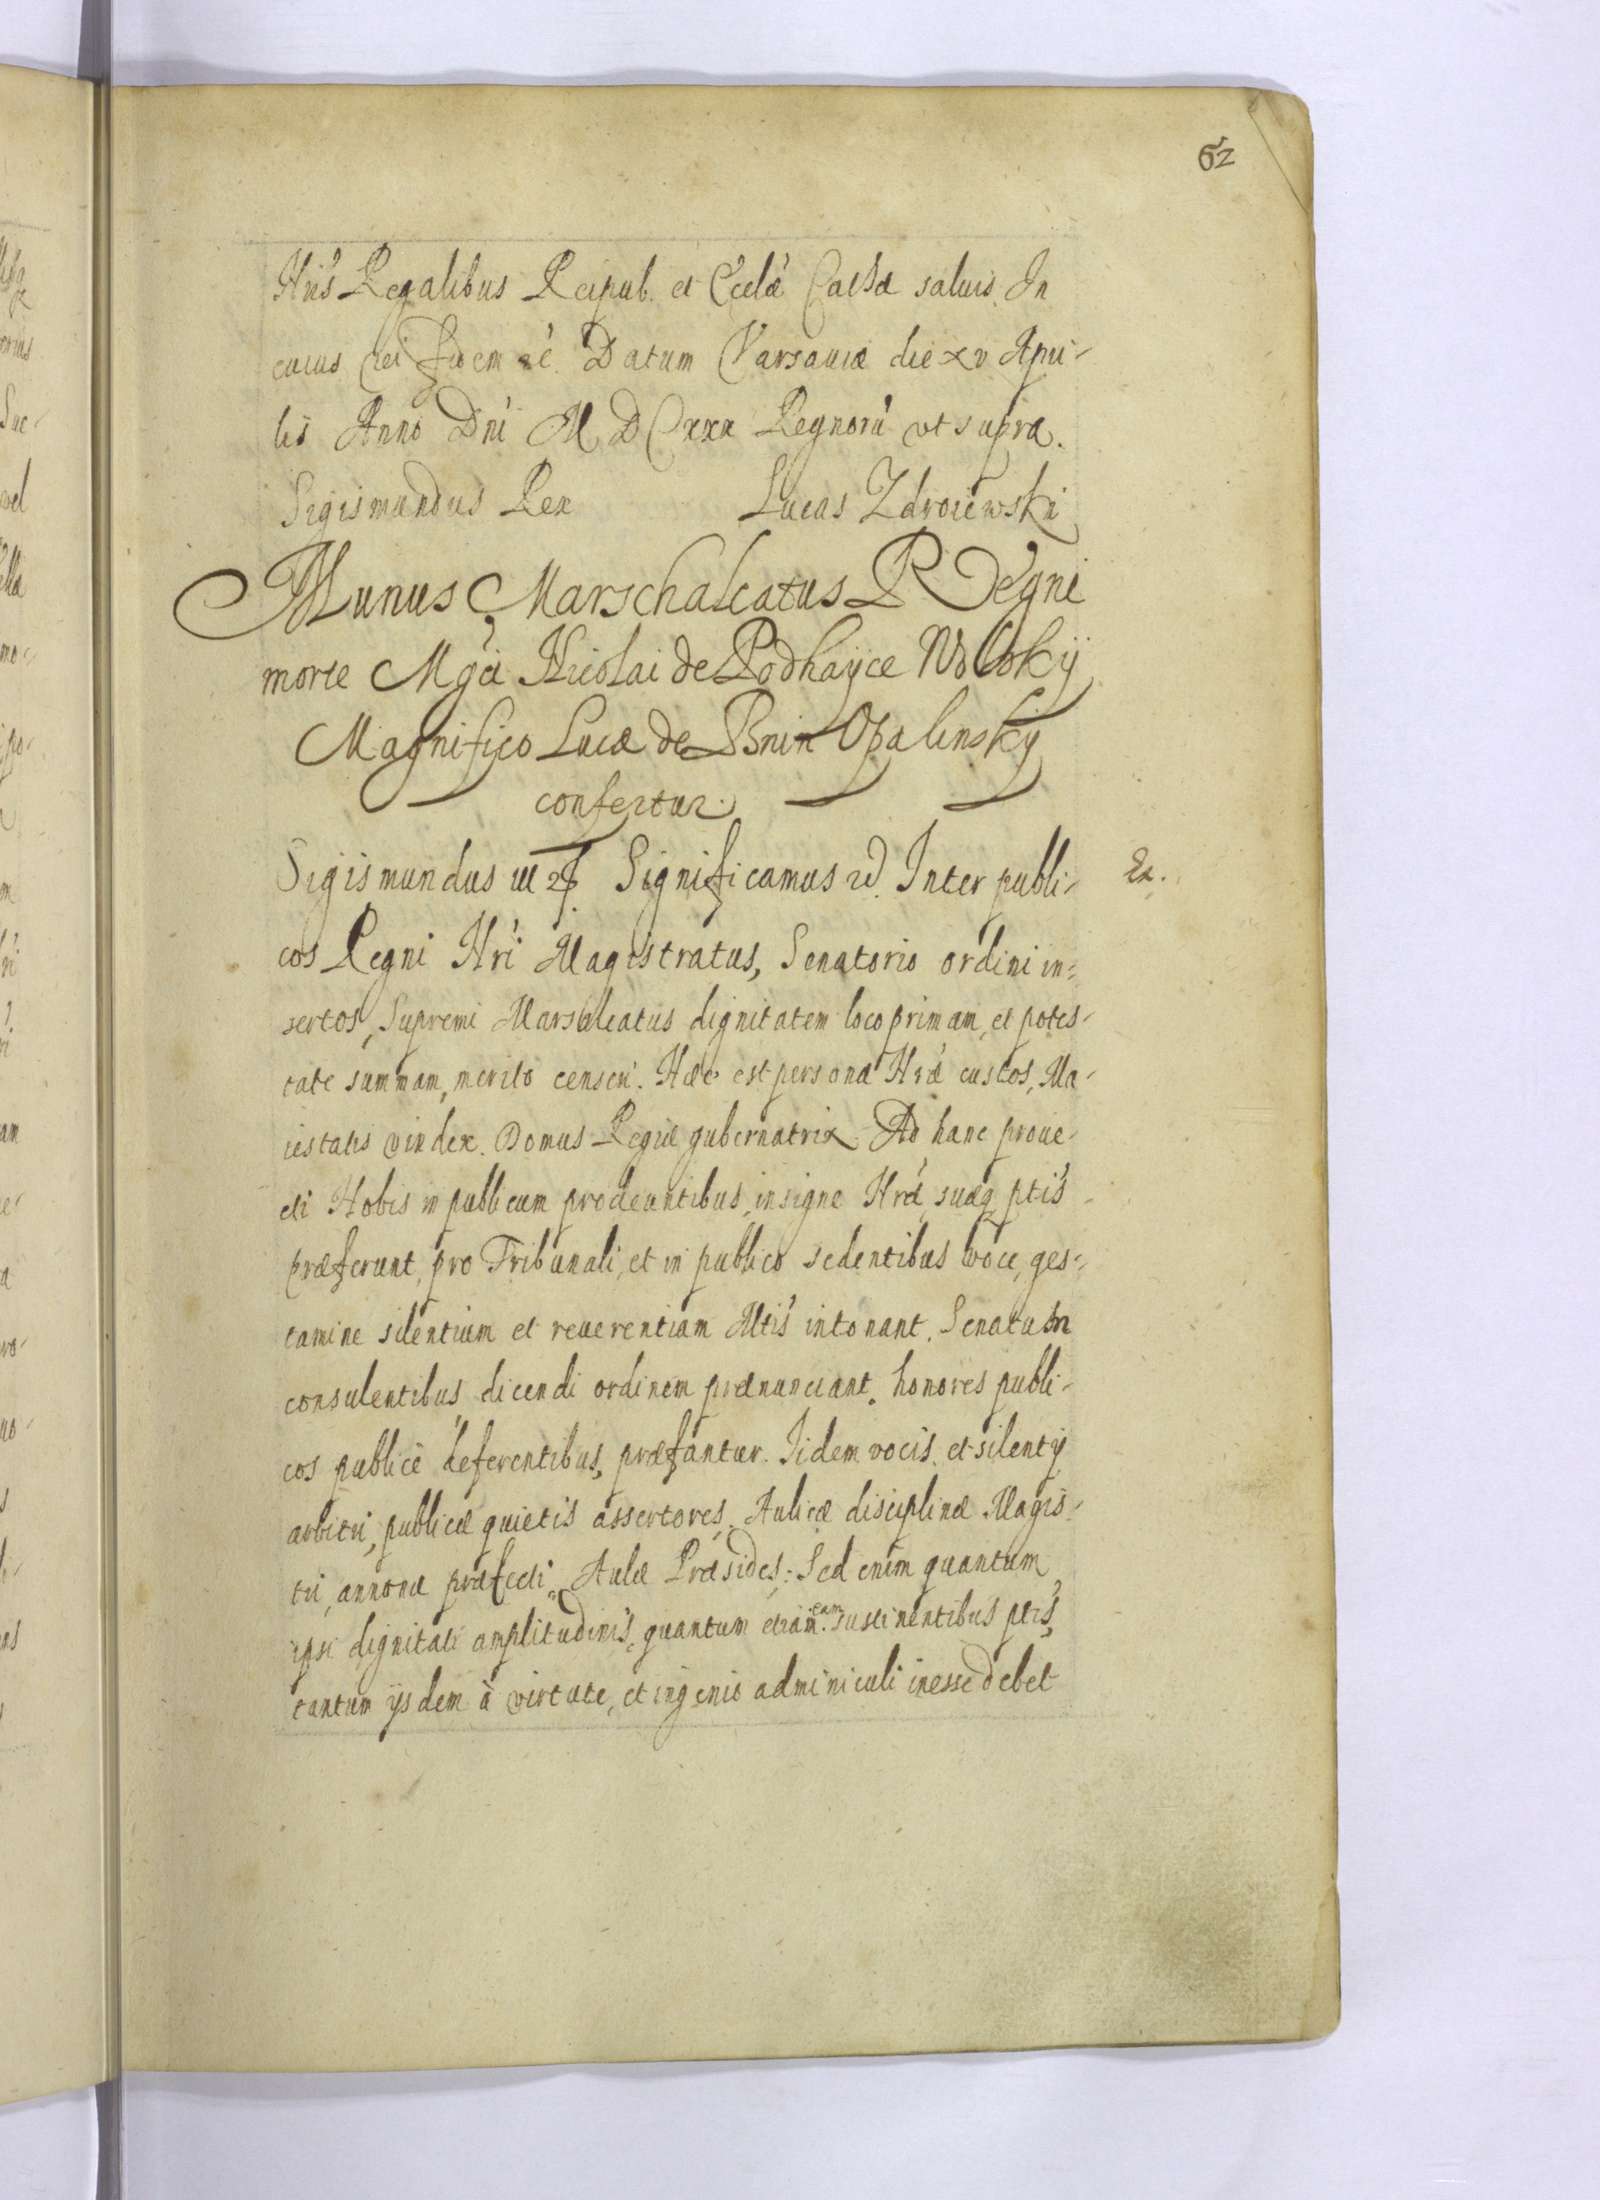 62
Nris Regalibus Reipub. et Eccliae Catholicae saluis. In
cuius rei fidem etc. Datum Varsauiae die xv Apri-
lis Anno Dni M D Cxxx Regnorũ vt supra.
Sigismundus Rex Lucas Zdroiewski
Munus Marschalcatus Regni
morte Mgci Nicolai de Podhayce Wolsky
Magnifico Lucae de Bnin Opalinsky
confertur.
Sigismundus III Significamus Inter publi-
Ex.
cos Regni Nri Magistratus, Senatorio ordini in-
sertos, Supremi Marschalcatus dignitatem loco primam, et potes-
tate summam, merito censeri. Haec est personae Nrae custos, Ma-
iestatis vindex. Domus Regiae gubernatrix. Ad hanc proue-
cti Nobis in publicum prodeuntibus, insigne Nrae, suaeq ptis
praeferunt, pro Tribunali, et in publico sedentibus voce, ges-
tamine silentium et reuerentiam Mtis intonant. Senatum
consulentibus, dicendi ordinem praenunciant. honores publi-
cos publicè deferentibus, praefantur. Iidem vocis et silentÿ
arbitri, publicae quietis assertores, Aulicae disciplinae Magis-
tri, annonae praefecti, Aulae Praesides: Sed enim quantum
ipsi dignitati amplitudinis, quantum etiam eam sustinentibus ptis,
tantum ijsdem à virtute, et ingenio adminiculi inesse debet